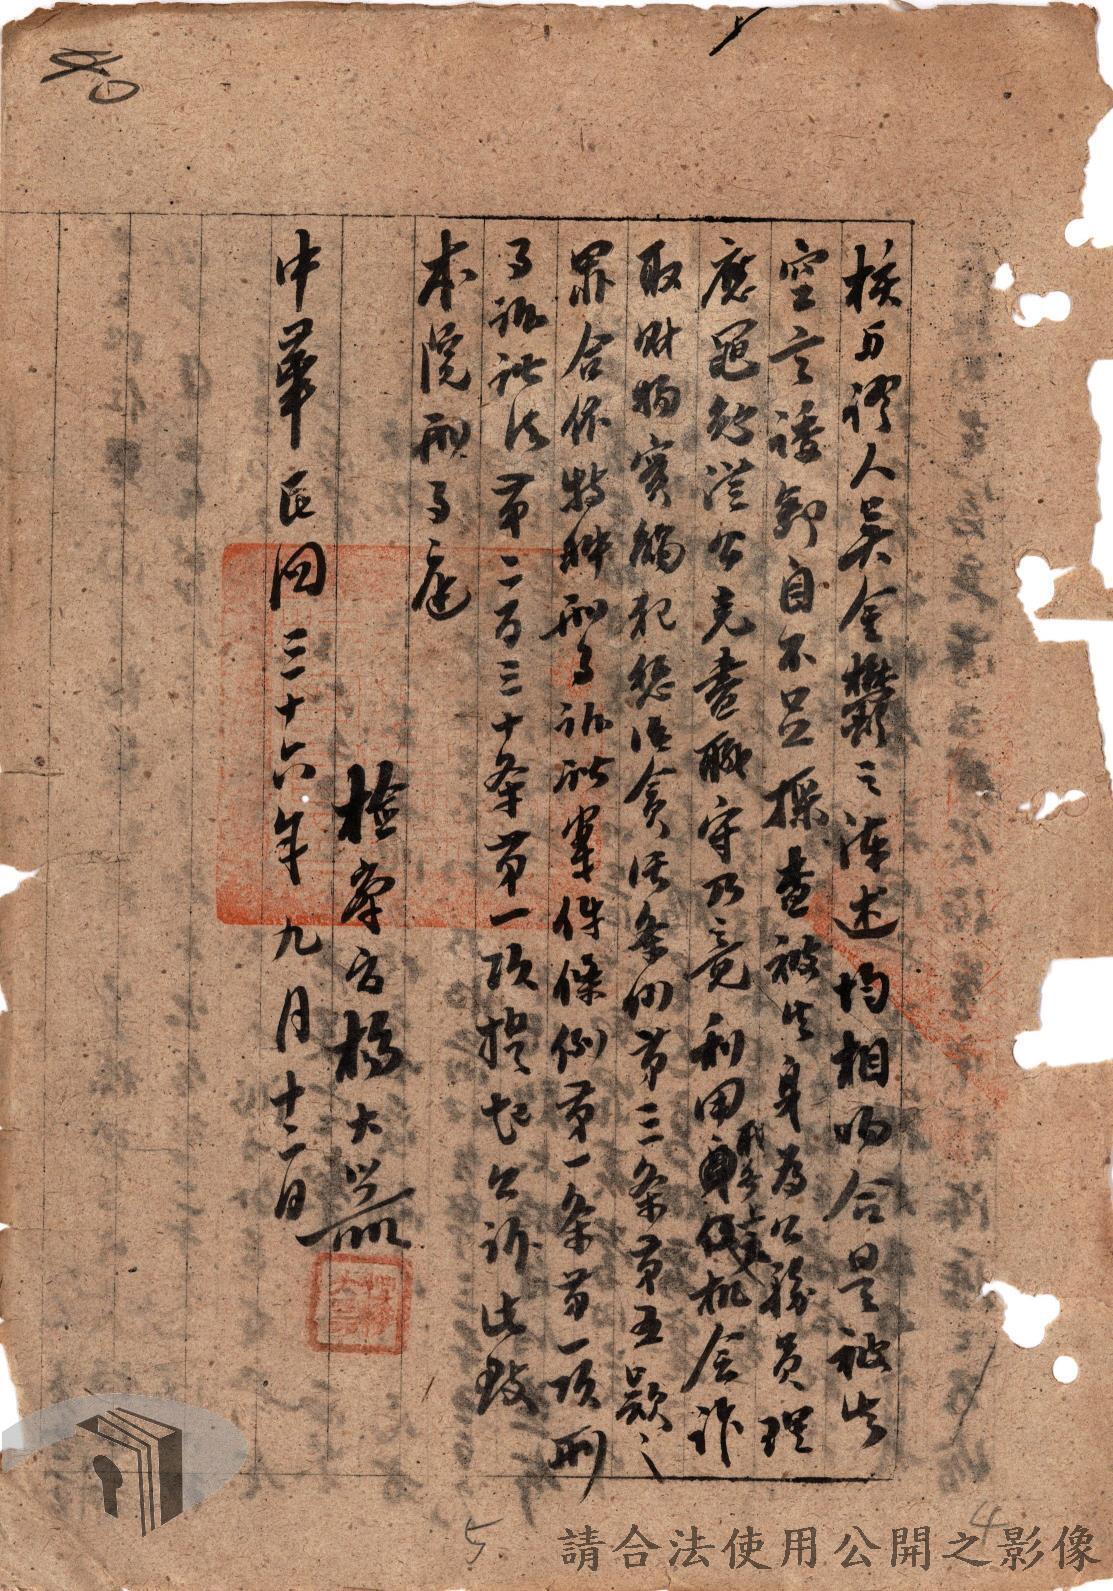 核与證人吳金櫸之陳述均相吻合是被告
空言諉卸自不足採查被告身為公務員理
應黽勉從公克盡職守乃竟利用職務上之機會詐
取財物實觸犯懲治貪污条例第三条第五款之
罪合依特种刑事訴訟案件條例第一条第一項刑
事訴訟法第二百三十条第一項提起公訴此致
本院刑事庭
檢察官楊大器
中華民国三十六年九月十二日
5
4
請合法使用公開之影像